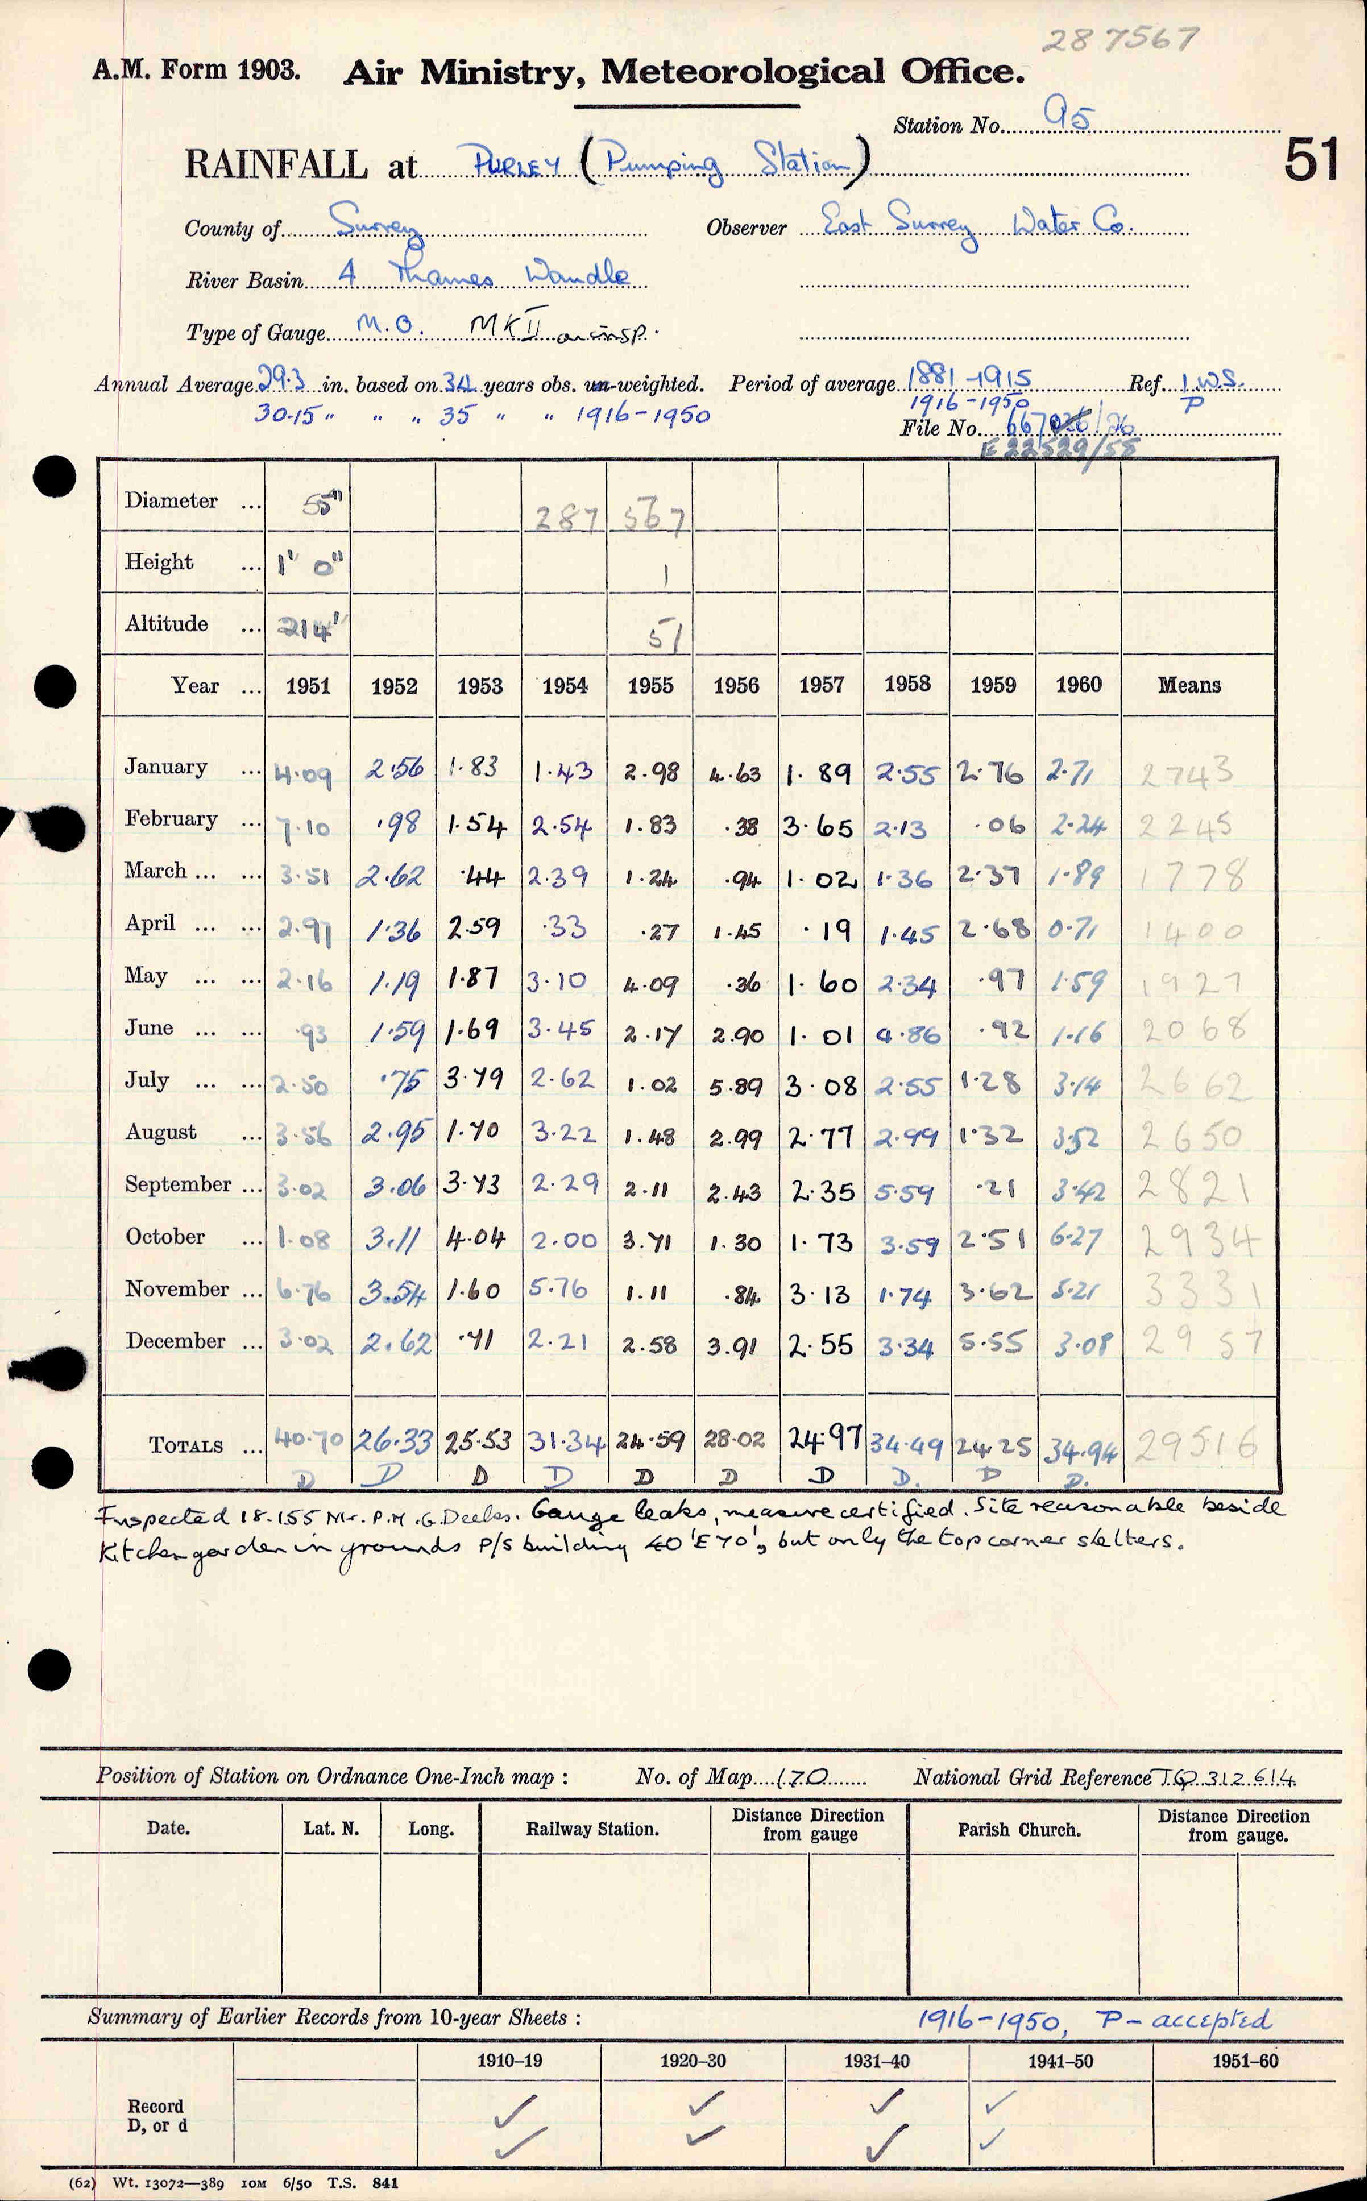 28 7567
A.M. Form 1903. Air Ministry, Meteorological Office.
Station No. 95
51
RAINFALL at PURLEY (Pumping Station)
County of Surrey Observer East Surrey Water Co.
River Basin 4 Thames Wandle
Type of Gauge M.O. MK II on insp.
Annual Average 29.3 in. based on 34 years obs. un-weighted. Period of average 1881-1915 Ref. I.W.S.
30.15 " " " 35 " " 1916-1950 1916-1950 P
File No. 667026/26
E 22529/55
Diameter ... 5" 287 567
Height ... 1' 0" 1
Altitude ... 214' 51
Year ... 1951 1952 1953 1954 1955 1956 1957 1958 1959 1960 Means
January ... 4.09 2.56 1.83 1.43 2.98 4.63 1.89 2.55 2.76 2.71 2743
February ... 7.10 .98 1.54 2.54 1.83 .38 3.65 2.13 .06 2.24 2245
March ... ... 3.51 2.62 .44 2.39 1.24 .94 1.02 1.36 2.37 1.89 1778
April ... ... 2.97 1.36 2.59 .33 .27 1.45 .19 1.45 2.68 0.71 1400
May ... ... 2.16 1.19 1.87 3.10 4.09 .36 1.60 2.34 .97 1.59 1927
June ... ... .93 1.59 1.69 3.45 2.17 2.90 1.01 4.86 .92 1.16 2068
July ... ... 2.50 .75 3.79 2.62 1.02 5.89 3.08 2.55 1.28 3.14 2662
August ... 3.56 2.95 1.70 3.22 1.48 2.99 2.77 2.99 1.32 3.52 2650
September ... 3.02 3.06 3.73 2.29 2.11 2.43 2.35 5.59 .21 3.42 2821
October ... 1.08 3.11 4.04 2.00 3.71 1.30 1.73 3.59 2.51 6.27 2934
November ... 6.76 3.54 1.60 5.76 1.11 .84 3.13 1.74 3.62 5.21 3331
December ... 3.02 2.62 .71 2.21 2.58 3.91 2.55 3.34 5.55 3.08 2957
TOTALS ... 40.70 26.33 25.53 31.34 24.59 28.02 24.97 34.49 24.25 34.94 29516
D D D D D D D D. D D.
Inspected 18.1.55 Mr. P.M.G. Deeles. Gauge leaks, measure certified. Site reasonable beside
Kitchen garden in grounds P/S building 40'E70', but only the top corner shelters.
Position of Station on Ordnance One-Inch map : No. of Map 170 National Grid Reference TQ 312 614
Date. Lat. N. Long. Railway Station. Distance Direction from gauge Parish Church. Distance Direction from gauge.
Summary of Earlier Records from 10-year Sheets : 1916-1950, P - accepted
1910-19 1920-30 1931-40 1941-50 1951-60
Record ✓ ✓ ✓ ✓
D, or d ✓ ✓ ✓ ✓
(62) Wt. 13072—389 10M 6/50 T.S. 841